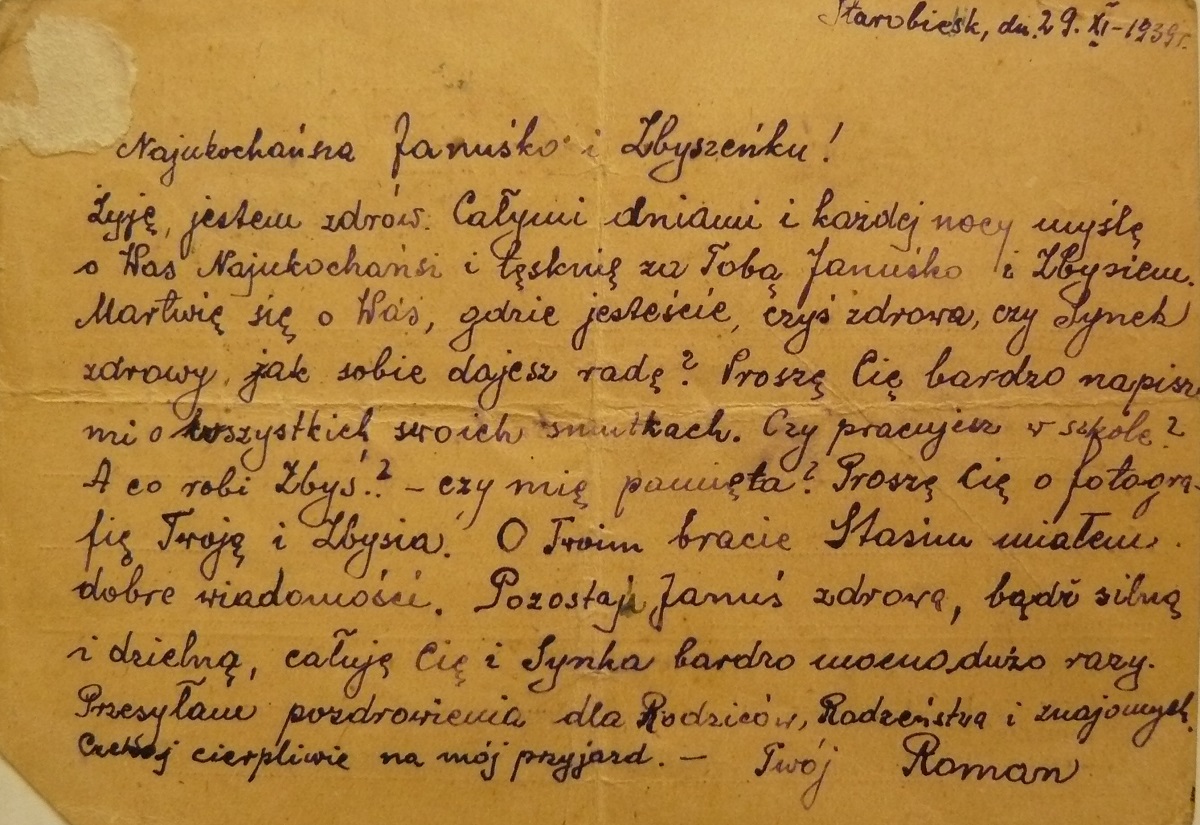 Starobielsk, dn. 29. XI-1939r.
Najukochańsza Januśko i Zbyszeńku!
Żyję, jestem zdrów. Całymi dniami i każdej nocy myślę
o Was Najukochańsi i tęsknię za Tobą Januśko i Zbysiem.
Martwię się o Was, gdzie jesteście, czyś zdrowa, czy Synek
zdrowy, jak sobie dajesz radę? Proszę Cię bardzo napisz
mi o wszystkich swoich smutkach. Czy pracujesz w szkole?
A co robi Zbyś..? – czy mię pamięta? Proszę Cię o fotogra-
fię Twoją i Zbysia. O Twoim bracie Stasiu miałem
dobre wiadomości. Pozostaj Januś zdrową, bądź silną
i dzielną, całuję Cię i Synka bardzo mocno, dużo razy.
Przesyłam pozdrowienia dla Rodziców, Rodzeństwa i znajomych.
Czekaj cierpliwie na mój przyjazd. – Twój Roman